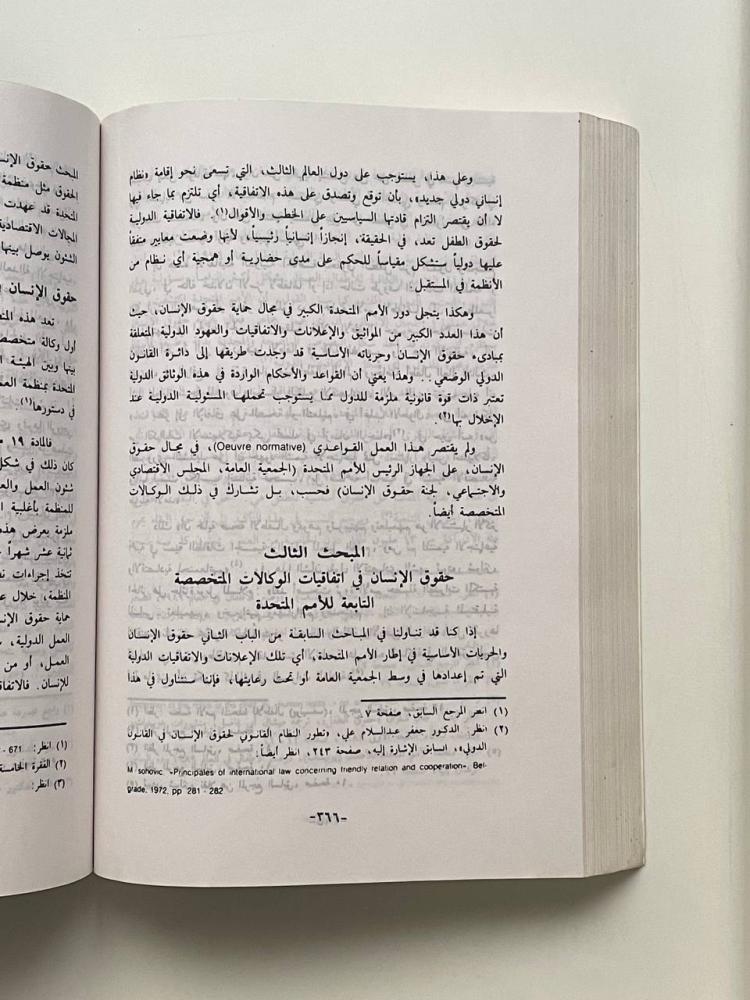 وعلى هذا، يستوجب على دول العالم الثالث، التي تسعى نحو إقامة «نظام
إنساني دولي جديد»، بأن توقع وتصدق على هذه الاتفاقية، أي تلتزم بما جاء فيها
لا أن يقتصر التزام قادتها السياسيين على الخطب والأقوال(١). فالاتفاقية الدولية
لحقوق الطفل تعد، في الحقيقة، إنجازاً إنسانياً رئيسياً، لأنها وضعت معايير متفقاً
عليها دولياً ستشكل مقياساً للحكم على مدى حضارية أو همجية أي نظام من
الأنظمة في المستقبل.
وهكذا يتجلى دور الأمم المتحدة الكبير في مجال حماية حقوق الإنسان، حيث
أن هذا العدد الكبير من المواثيق والإعلانات والاتفاقيات والعهود الدولية المتعلقة
بمبادىء حقوق الإنسان وحرياته الأساسية قد وجدت طريقها إلى دائرة القانون
الدولي الوضعي.. وهذا يعني أن القواعد والأحكام الواردة في هذه الوثائق الدولية
تعتبر ذات قوة قانونية ملزمة للدول مما يستوجب تحملها المسئولية الدولية عند
الإخلال بها(٢).
ولم يقتصر هذا العمل القواعدي (Oeuvre normative)، في مجال حقوق
الإنسان، على الجهاز الرئيس للأمم المتحدة (الجمعية العامة، المجلس الاقتصادي
والاجتماعي، لجنة حقوق الإنسان) فحسب، بل تشارك في ذلك الوكالات
المتخصصة أيضاً.
المبحث الثالث
حقوق الإنسان في اتفاقيات الوكالات المتخصصة
التابعة للأمم المتحدة
إذا كنا قد تناولنا في المباحث السابقة من الباب الثاني حقوق الإنسان
والحريات الأساسية في إطار الأمم المتحدة، أي تلك الإعلانات والاتفاقيات الدولية
التي تم إعدادها في وسط الجمعية العامة أو تحت رعايتها، فإننا سنتناول في هذا
(١) انظر المرجع السابق، صفحة ٧
(٢) انظر: الدكتور جعفر عبدالسلام علي، «تطور النظام القانوني لحقوق الإنسان في القانون
الدولي»، السابق الإشارة إليه، صفحة ٢٤٣، انظر أيضاً:
M sohovic. «Principales of international law concerning friendly relation and cooperation». Bel-
grade, 1972, pp 281 - 282
-٣٦٦-
المبحث حقوق
الحقوق مثل منظمة
المتحدة قد عهدت
المجالات الاقتصادية
الشئون يوصل بينها
حقوق الإنسان
تعد هذه
أول وكالة
بينها وبين الهيئة
المتحدة بمنظمة
في دستورها(١).
فالمادة ١٩
كان ذلك في شكل
شئون العمل
للمنظمة بأغلبية
ملزمة بعرض هذه
ثمانية عشر شهراً
تتخذ إجراءات
المنظمة، خلال
حماية حقوق
العمل الدولية،
العمل، أو من
للإنسان.
(١) انظر: 671 -
(٢) الفقرة الخامسة
(٣) انظر: